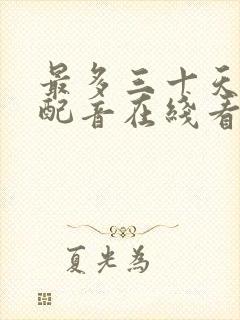 最多三十天
配音在线看
夏光為